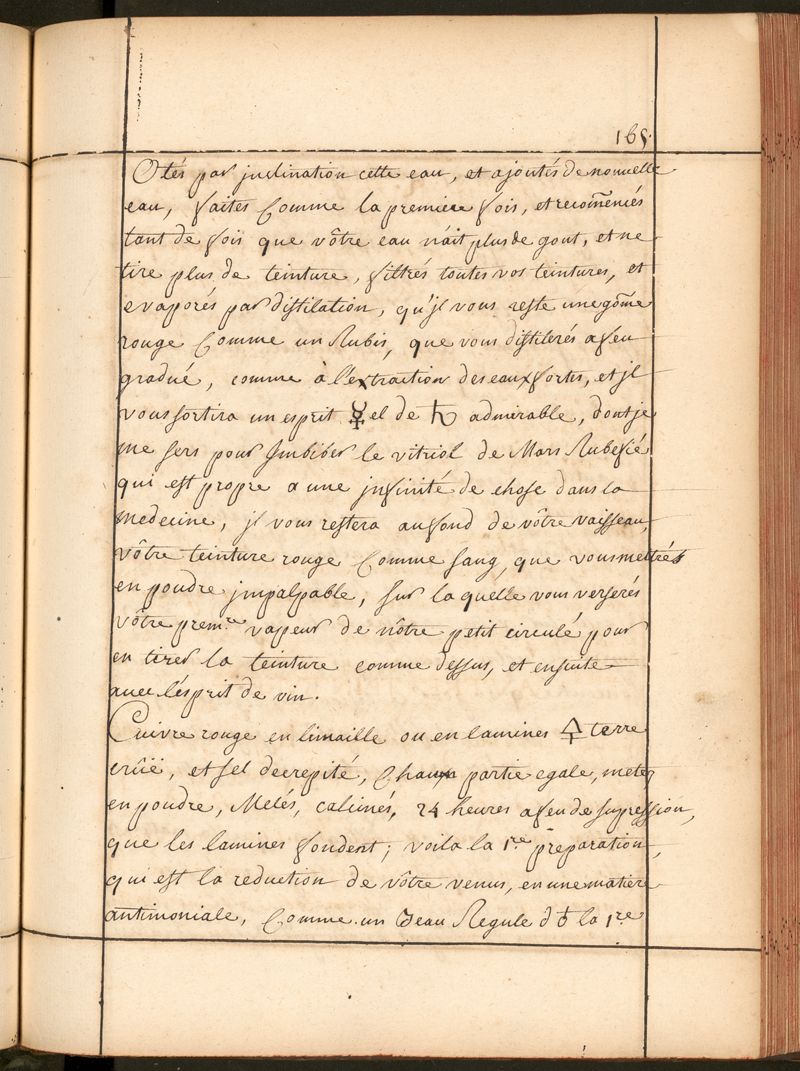 165.
Otés par jnclination cette eau, et ajoutés de nouuelle
eau, faites Comme la premiere fois, et recom̃encés
tant de fois que vôtre eau n'ait plus de gout, et ne
tire plus de teinture, filtrés toutes vos teintures, et
evaporés par distilation, qu'jl vous reste une gõme
rouge Comme un Rubis, que vous distilerés a feu
gradué, comme à l'extraction des eaux fortes, et jl
vous sortira un esprit ☿ el de ♄ admirable, dont je
me sers pour Jmbiber le vitriol de Mars Rubefié
qui est propre a une jnfinité de chose dans la
medecine, jl vous restera au fond de vôtre vaisseau,
vôtre teinture rouge Comme sang, que vous mettrés
en poudre jmpalpable, sur la quelle vous verserés
vôtre prem.re vapeur de nôtre petit circulé pour
en tirer la teinture comme dessus, et ensuite
auec l'esprit de vin.
Cuivre rouge en limaille ou en lamines 🜍 terre
crûë, et sel decrepité, Chaux partie egale, metez
en poudre, Melés, calcinés, 24 heures a feu de supression,
que les lamines fondent; voila la 1.re preparation,
qui est la reduction de vôtre venus, en une matiere
antimoniale, Comme un Beau Regule d ♁ la 1.re